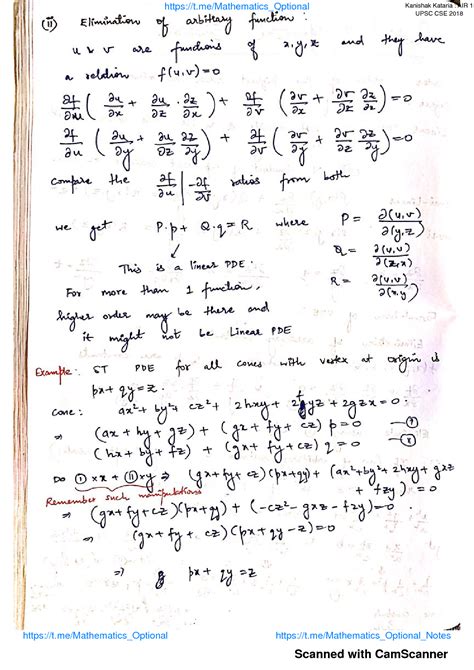 https://t.me/Mathematics_Optional
Kanishak Kataria AIR 1
UPSC CSE 2018
(ii) Elimination of arbitrary function :
u & v are functions of x, y, z and they have
a relation f(u,v) = 0
∂f/∂u (∂u/∂x + ∂u/∂z · ∂z/∂x) + ∂f/∂v (∂v/∂x + ∂v/∂z ∂z/∂x) = 0
∂f/∂u (∂u/∂y + ∂u/∂z ∂z/∂y) + ∂f/∂v (∂v/∂y + ∂v/∂z ∂z/∂y) = 0
compare the ∂f/∂u | -∂f/∂v ratios from both
we get P.p + Q.q = R where P = ∂(u,v)/∂(y,z)
Q = ∂(u,v)/∂(z,x)
This is a linear PDE.
R = ∂(u,v)/∂(x,y)
For more than 1 function,
higher order may be there and
it might not be Linear PDE
Example: ST PDE for all cones with vertex at origin is
px + qy = z.
Cone: ax² + by² + cz² + 2hxy + 2fyz + 2gzx = 0
⇒ (ax + hy + gz) + (gx + fy + cz) p = 0 — (I)
(hx + by + fz) + (gx + fy + cz) q = 0 — (II)
Do (I) × x + (II) × y ⇒ (gx + fy + cz) (px + qy) + (ax² + by² + 2hxy + gxz
+ fzy) = 0
Remember such manipulations
⇒ (gx + fy + cz) (px + qy) + (-cz² - gzx - fzy) = 0
⇒ (gx + fy + cz) (px + qy - z) = 0
⇒ px + qy = z
https://t.me/Mathematics_Optional
https://t.me/Mathematics_Optional_Notes
Scanned with CamScanner